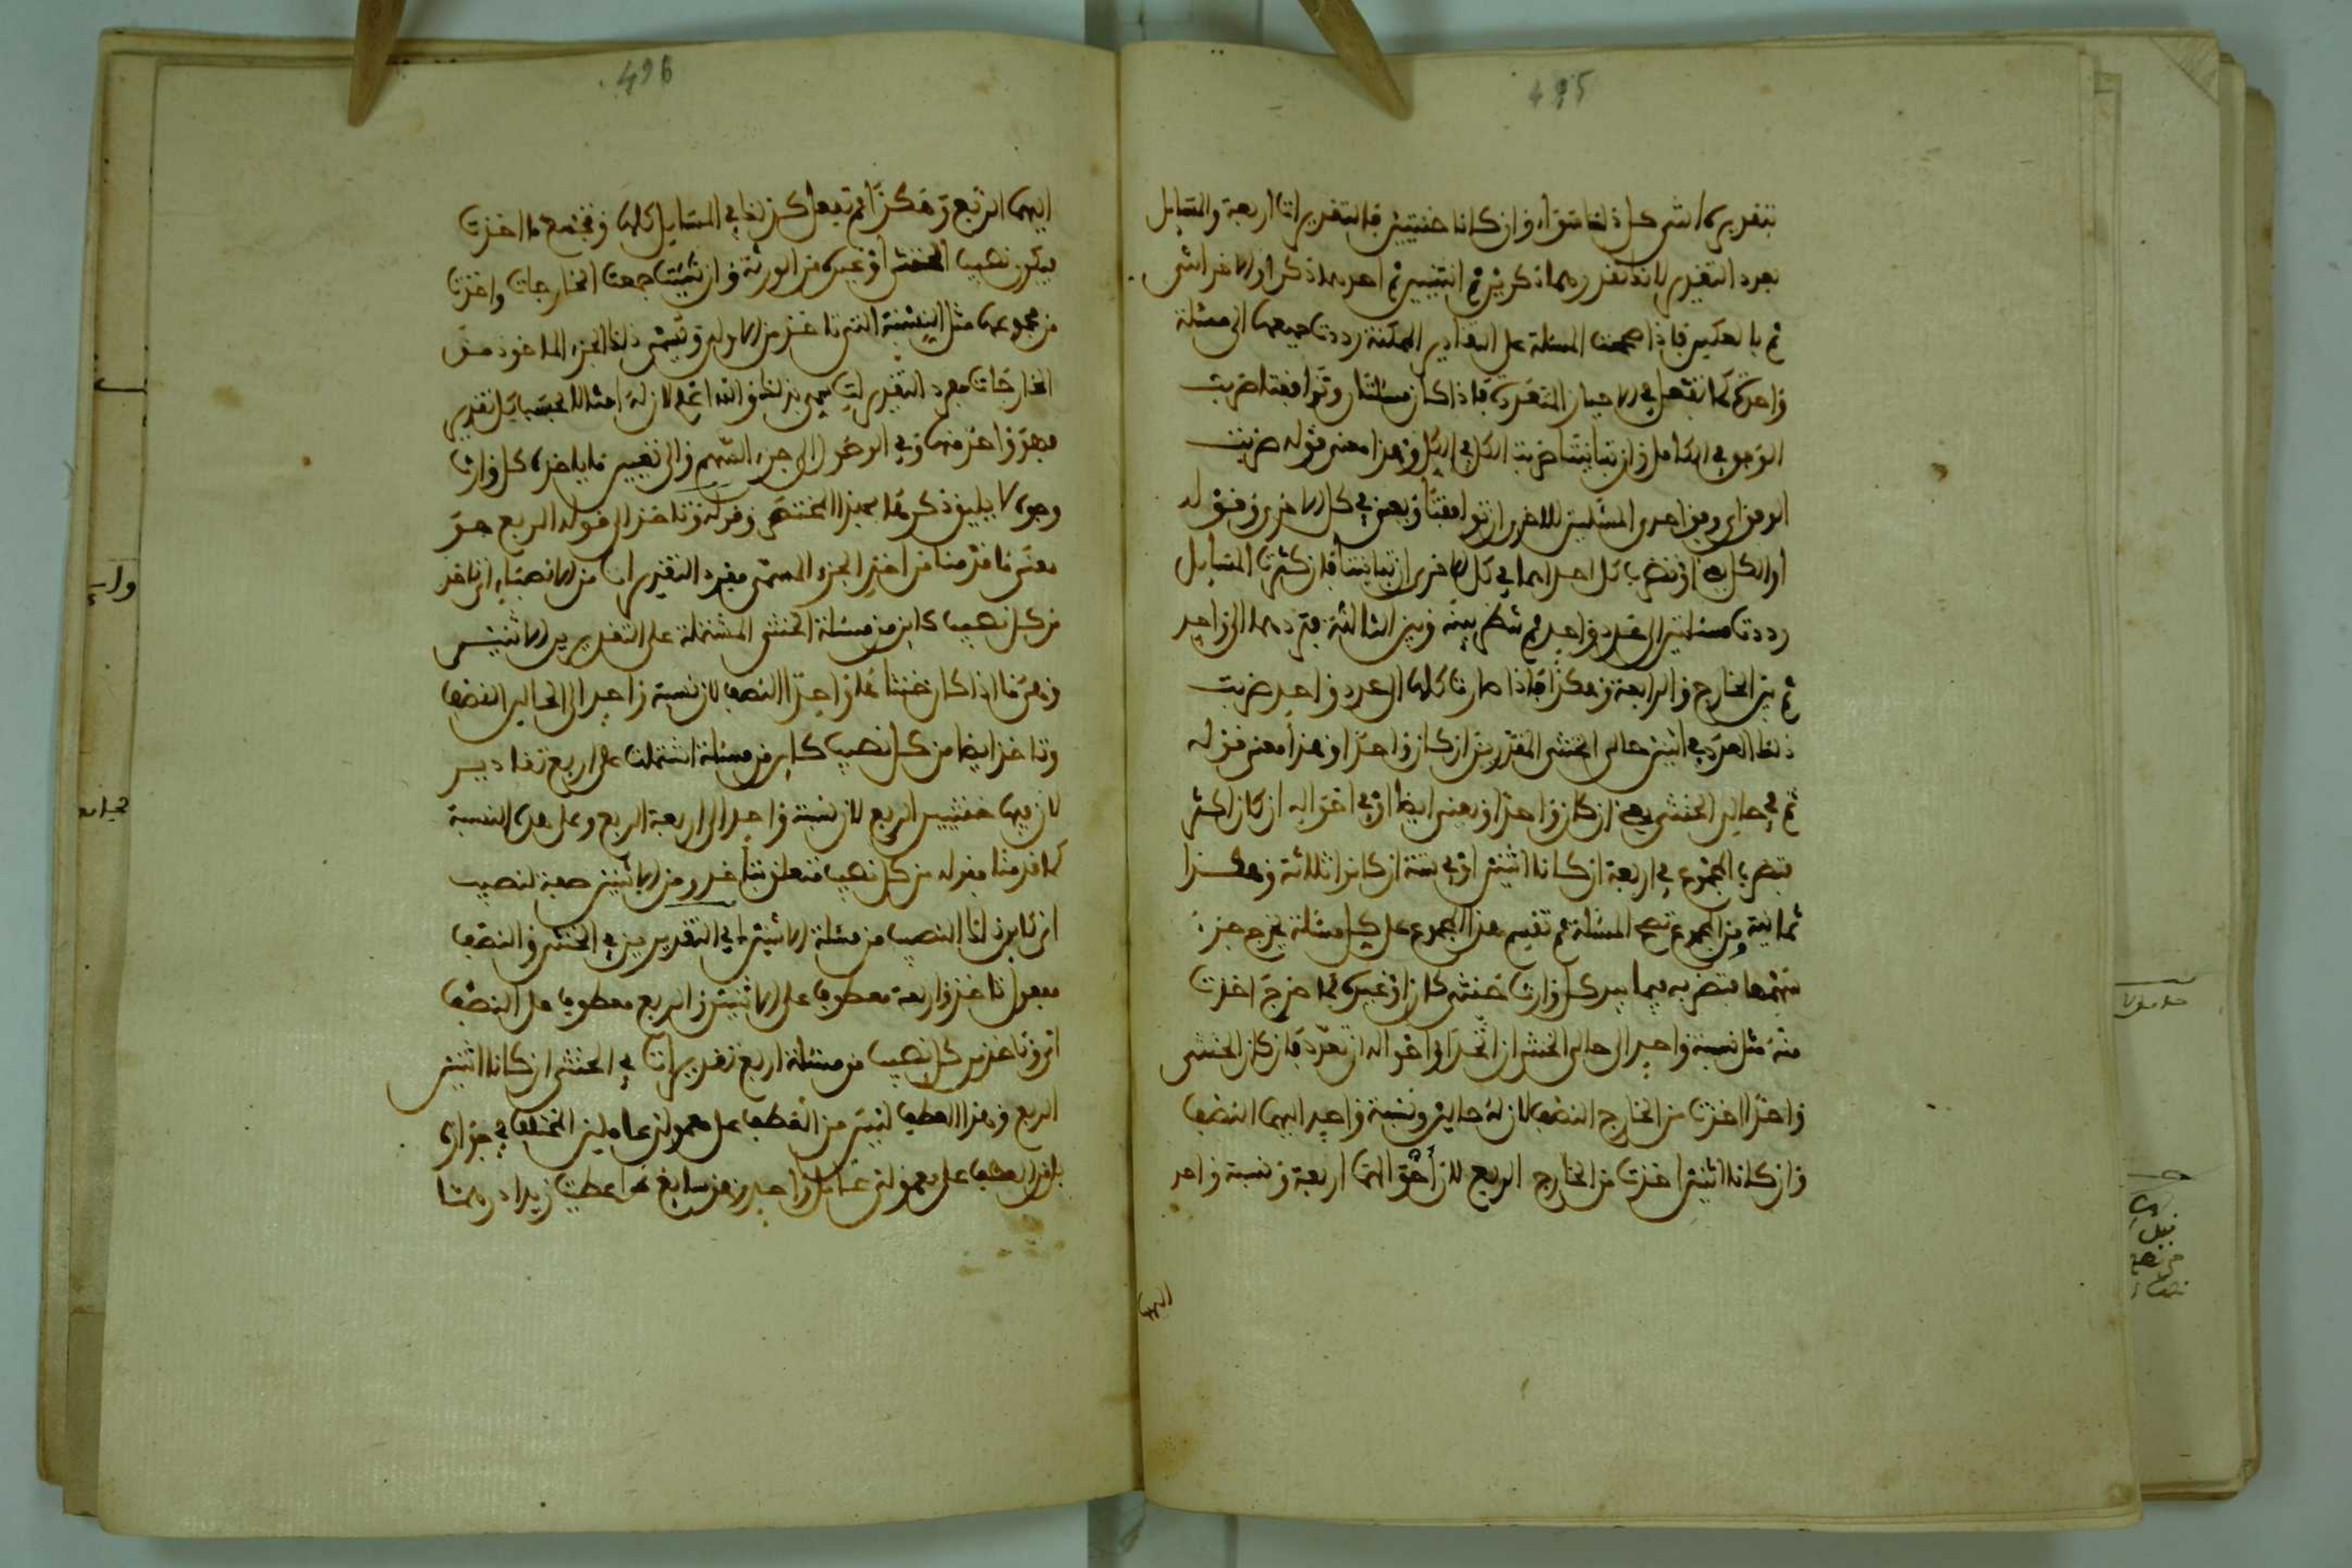 495
بتقديره انثى كل ذلك سواء وان كانا خنثيين فالتقديرات اربعة والمسايل
بعدد التقدير لانك تقدرهما ذكرين ثم انثيين ثم احدهما ذكرا والاخر انثى
ثم بالعكس فاذا صححت المسئلة على التقادير الممكنة رددت جميعها الى مسئلة
واحدة كما تفعل في الاحياز المتعددة فاذا كان مسئلتان وتوافقتا ضربت
الوفق في الكامل وان تباينتا ضربت الكل في الكل وهذا معنى قوله ضربت
الوفق اي وفق احدى المسئلتين للاخرى ان توافقتا وبعض في كل الاخرى وقوله
او الكل اي او تضرب كل احداهما في كل الاخرى ان تباينتا فان كثرت المسايل
رددت مسئلتين الى عدد واحد ثم تنظر بينه وبين الثالثة فتردهما الى واحد
ثم بين الخارج والرابعة وهكذا فاذا صارت كلها لعدد واحد ضربت
ذلك العدد في اثنين حالى الخنثى المقدرين ان كان واحدا وهذا معنى قوله
ثم في حالى الخنثى يعني ان كان واحدا ويعني ايضا او في احواله ان كان اكثر
فتضرب المجموع في اربعة ان كانا اثنين او في ستة ان كانوا ثلاثة وهكذا
ثمانية ومن المجموع تصح المسئلة ثم تقسم هذا المجموع على كل مسئلة يخرج جزء
سهمها فتضربه فيما بيد كل وارث خنثى كان او غيره فما خرج اخذت
منه مثل نسبة واحد الى حالى الخنثى ان اتحد او احواله ان تعدد فان كان الخنثى
واحدا اخذت من الخارج النصف لان له حالين ونسبة واحد اليهما النصف
وان كانا اثنين اخذت من الخارج الربع لان احوالهما اربعة ونسبة واحد
اليها
496
اليها الربع وهكذا ثم تفعل كذلك في المسايل كلها وتجمع ما اخذت
فيكون نصيب الخنثى او غيره من الورثة وان شئت جمعت الخارجات واخذت
من مجموعها مثل النسبة التي تاخذ من الاول وتسمى ذلك الجزء الماخوذ من
الخارجات مفرد التقدير
فهو واحد منها وفي الرد الى جزء السهم والى تفسير ما ياخذه كل وارث
وجوه لا يليق ذكرها بهذا المختصر وقوله وتاخذ الى قوله الربع هو
معنى ما قدمنا من اخذ الجزء المسمى مفرد التقديرات من الانصباء اي تاخذ
من كل نصيب كاين من مسئلة الخنثى المشتملة على التقديرين الاثنين
وهو ما اذا كان خنثا واحدا النصف لان نسبة واحد الى الحالين النصف
وتاخذ ايضا من كل نصيب كاين من مسئلة اشتملت على اربع تقادير
لان فيها خنثيين الربع لان نسبة واحد الى اربعة الربع وعلى هذه النسبة
كما قدمنا فقوله من كل نصيب متعلق بتاخذ ومن الاثنين صفة لنصيب
اي كاين ذلك النصيب من مسئلة الاثنين اي التقديرين في الخنثى والنصف
مفعول تاخذ واربعة معطوف على الاثنين والربع معطوف على النصف
اي وتاخذ من كل نصيب من مسئلة اربع تقديرات في الخنثى ان كانا اثنين
الربع وهذا العطف ليس من العطف على معمولي عاملين المختلف في جوازه
بل من العطف على معمولي عامل واحد وهو سايغ كاعطيت زيدا درهما